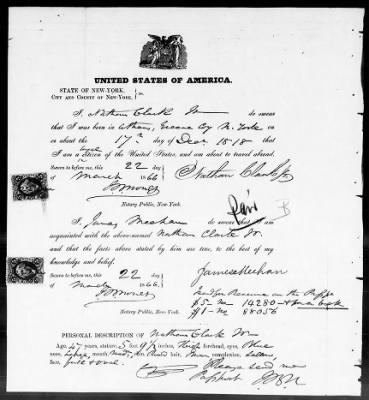 UNITED STATES OF AMERICA.
STATE OF NEW-YORK,
CITY AND COUNTY OF NEW-YORK, } ss.
I, Nathan Clark Jr do swear
that I was born in Athens, Greene Coy N. York
on or about the 17th day of Dec. 1818
that I am a Citizen of the United States, and am about to travel abroad.
Sworn to before me, this 22 day
of March 1866 Nathan Clark Jr
Notary Public, New York.
I, James Meehan do swear that I am
acquainted with the above-named Nathan Clark Jr.
and that the facts above stated by him are true, to the best of my
knowledge and belief.
Sworn to before me, this 22 day James Meehan
of March 1866.
Notary Public, New York.
$5- No 14280
$1- No 88056
PERSONAL DESCRIPTION OF Nathan Clark Jr
Age, 47 stature, 5 feet 9½ inches, High forehead, eyes, Blue
nose, large, mouth, hair, complexion,
face
Please send me
Passport